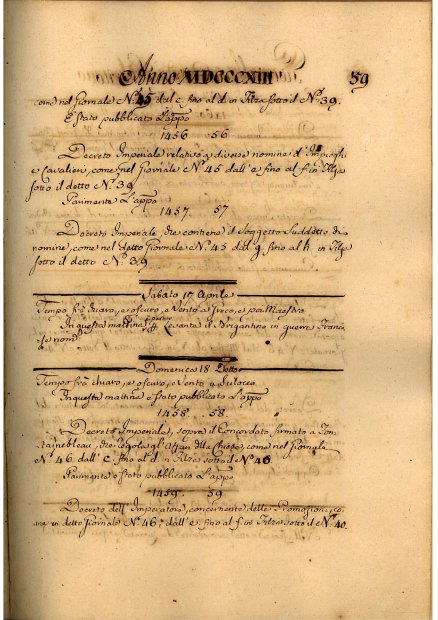 Anno MDCCCXIII 59
come nel Giornale Nº 45 dal c. fino al d. in Filza sotto il Nº 39.
È stato pubblicato L'appo
1456 56
Decreto Imperiale relativo a diverse nomine d' Impieghi
e Cavalieri, come nel Giornale Nº 45 dall' e fino al f. in Filza
sotto il detto Nº 39
Parimenti L'appo
1457. 57
Decreto Imperiale, che contiene il Soggetto Suddetto di
nomine, come nel detto Giornale Nº 45 dal g. fino al h. in Filza
sotto il detto Nº 39
Sabato 17 Aprile
Tempo frà chiaro, e oscuro, e Vento a Greco, e poi Maestro
In questa mattina Levante il Brigantino in guerra Franc
se nom
Domenica 18 Detto
Tempo frà chiaro, e oscuro, e Vento a
In questa mattina è stato pubblicato L'appo
1458. 58
Decreto Imperiale, sopra il Concordato firmato a Fon
tainebleau, che regola gl' affari della Chiesa, come nel Giornale
Nº 46 dall' c. fino al d. in Filza sotto il Nº 40
Parimente è stato pubblicato L'appo
1459. 59
Decreto dell' Imperatore, concernente delle Promozioni, co
me in detto Giornale Nº 46, dall' e. fino al f. in Filza sotto il Nº 40.